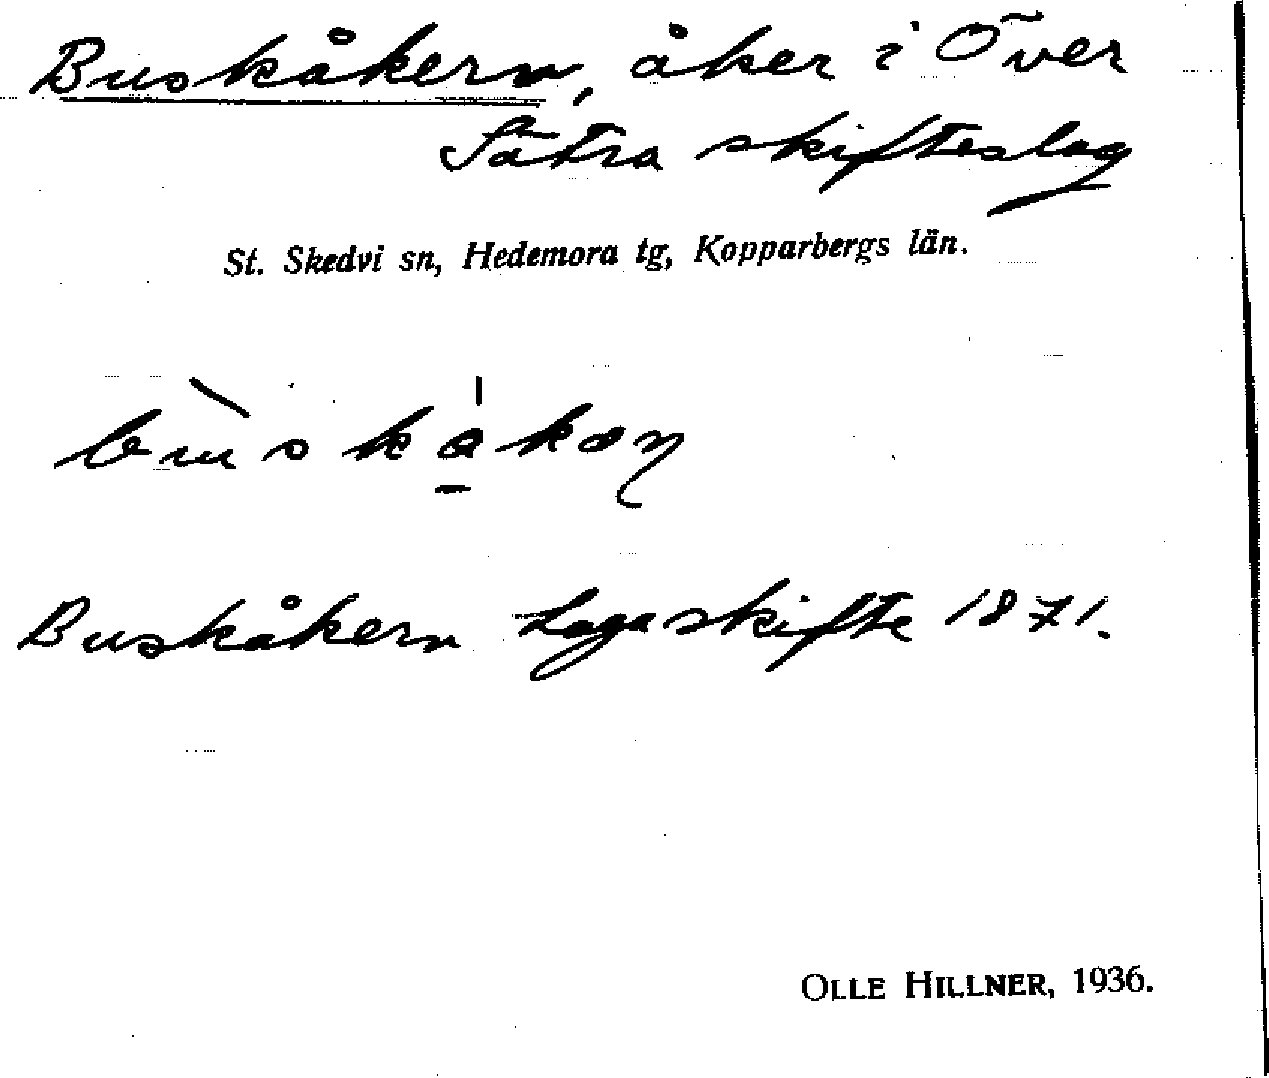 Buskåkern, åker i Över
Sätra skifteslag
St. Skedvi sn, Hedemora tg, Kopparbergs län.
Buskåkern Laga skifte 1871.
OLLE HILLNER, 1936.